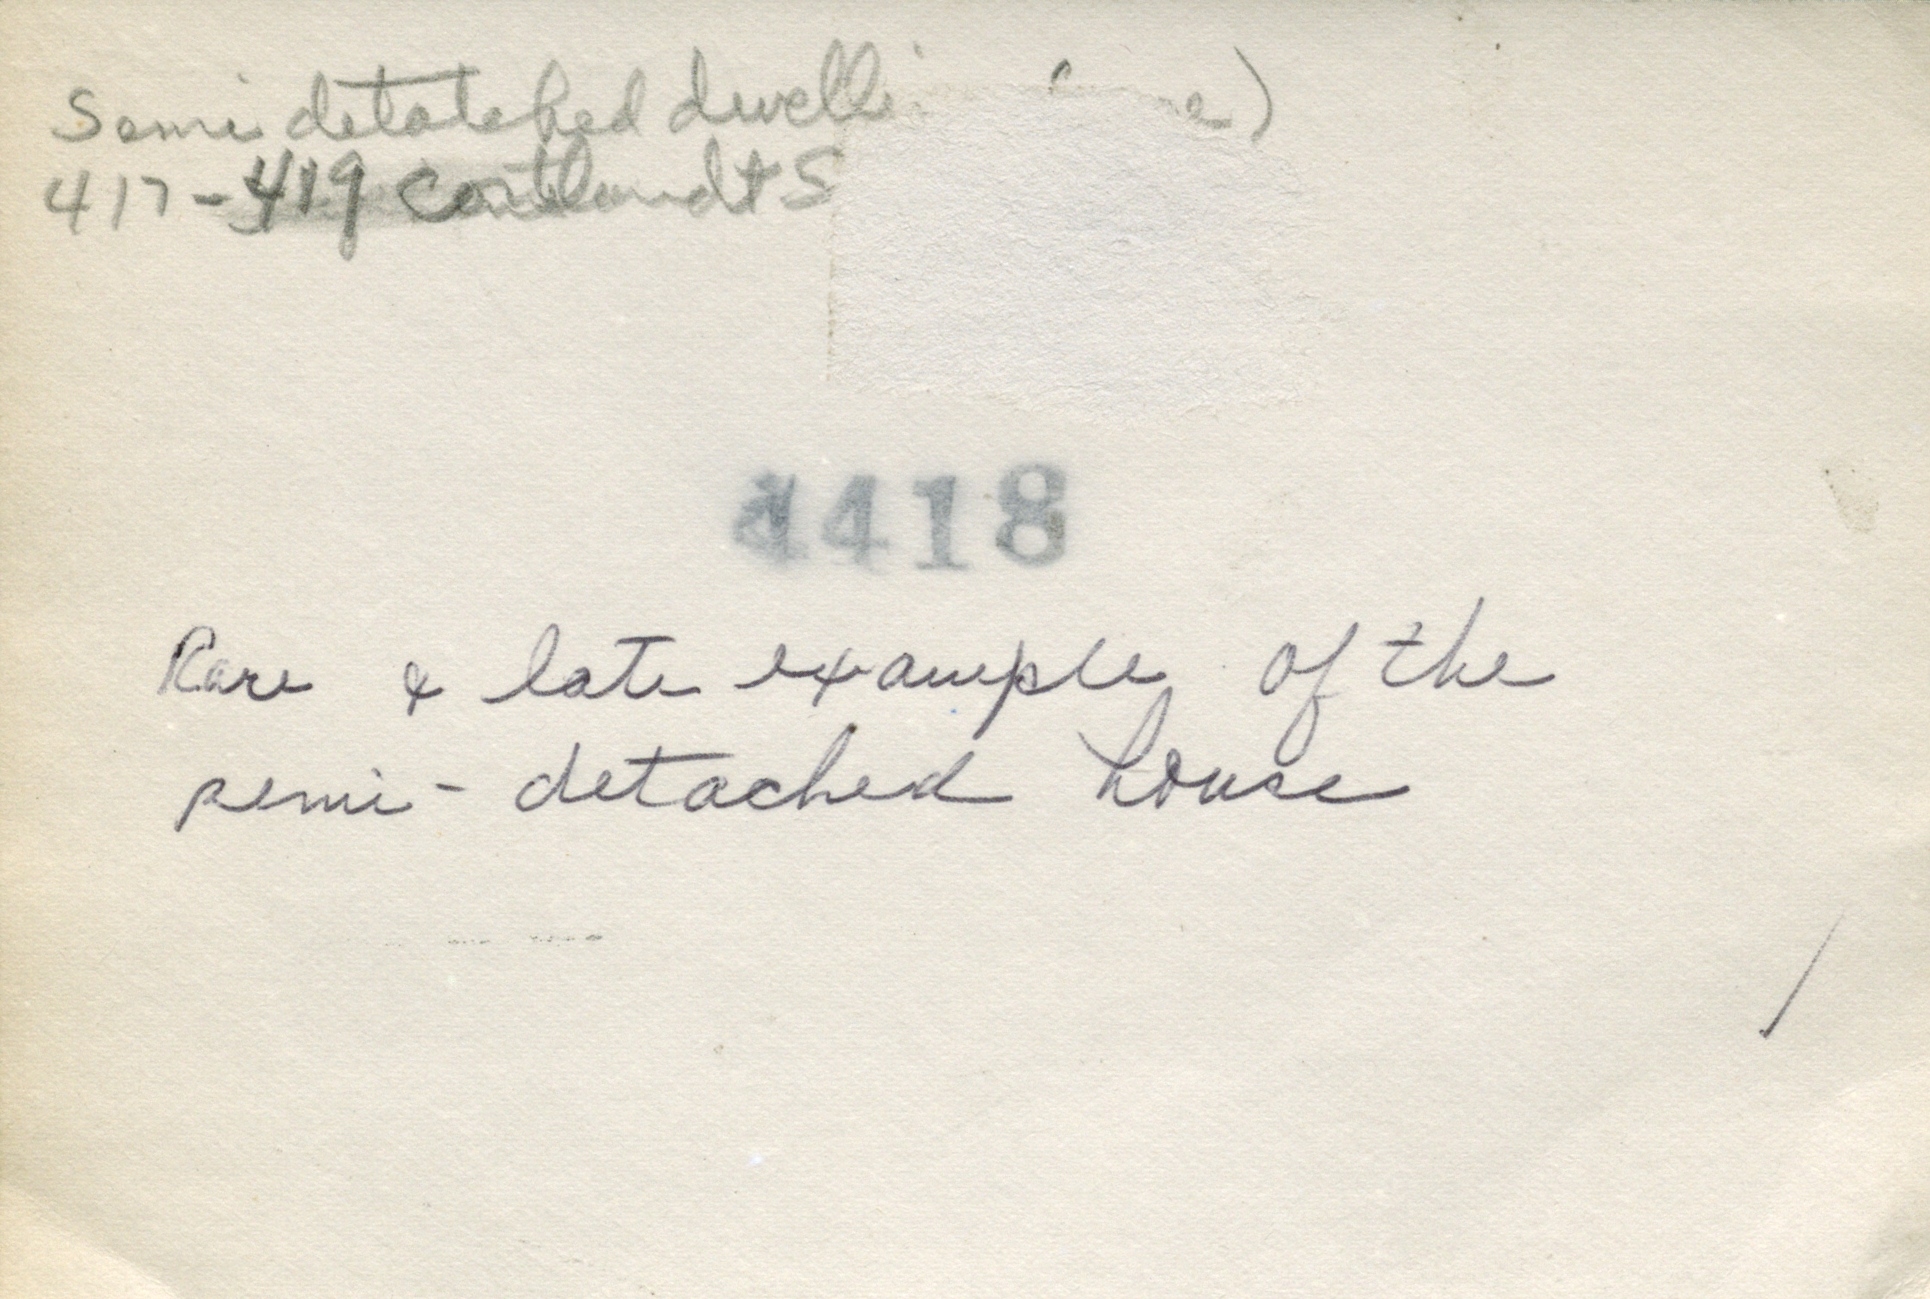 Semi detatched dwelli
417-419 Cortlandt S
4418
Rare & late example of the
semi-detached house